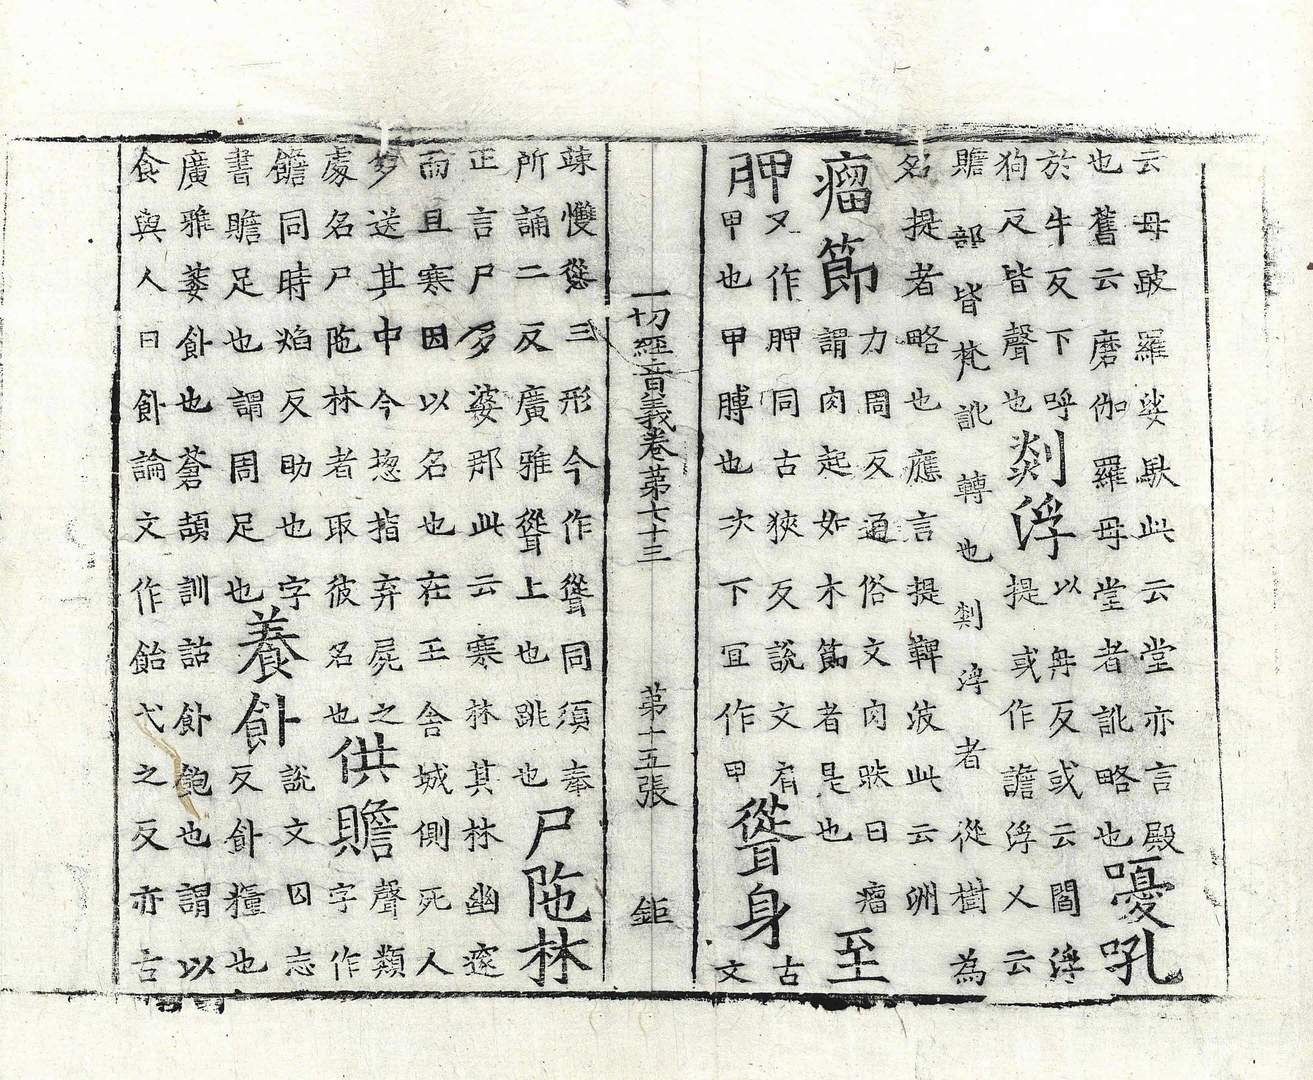 云母跛羅娑馱此云堂亦言殿
也舊云磨伽羅母堂者訛略也
嚘吼
於牛反下呼
狗反皆聲也
剡浮
以冉反或云閻浮
提或作譫浮又云
贍部皆梵訛轉也剡浮者從樹為
名提者略也應言提鞞波此云洲
瘤節
力周反通俗文肉胅曰瘤
謂肉起如木節者是也
至
胛
又作胛同古狹反說文肩
甲也甲膊也次下冝作甲
聳身
古
文
一切經音義卷第七十三 第十五張 鉅
竦㩳慫三形今作聳同須奉
所誦二反廣雅聳上也跳也
尸陁林
正言尸多婆那此云寒林其林幽邃
而且寒因以名也在王舍城側死人
多送其中今揔指弃屍之
處名尸陁林者取彼名也
供贍
聲類
字作
䭔同時焰反助也字
書贍足也謂周足也
養飤
說文囚志
反飤糧也
廣雅萎飤也蒼頡訓詁飤飽也謂以
食與人曰飤論文作飴弋之反亦古